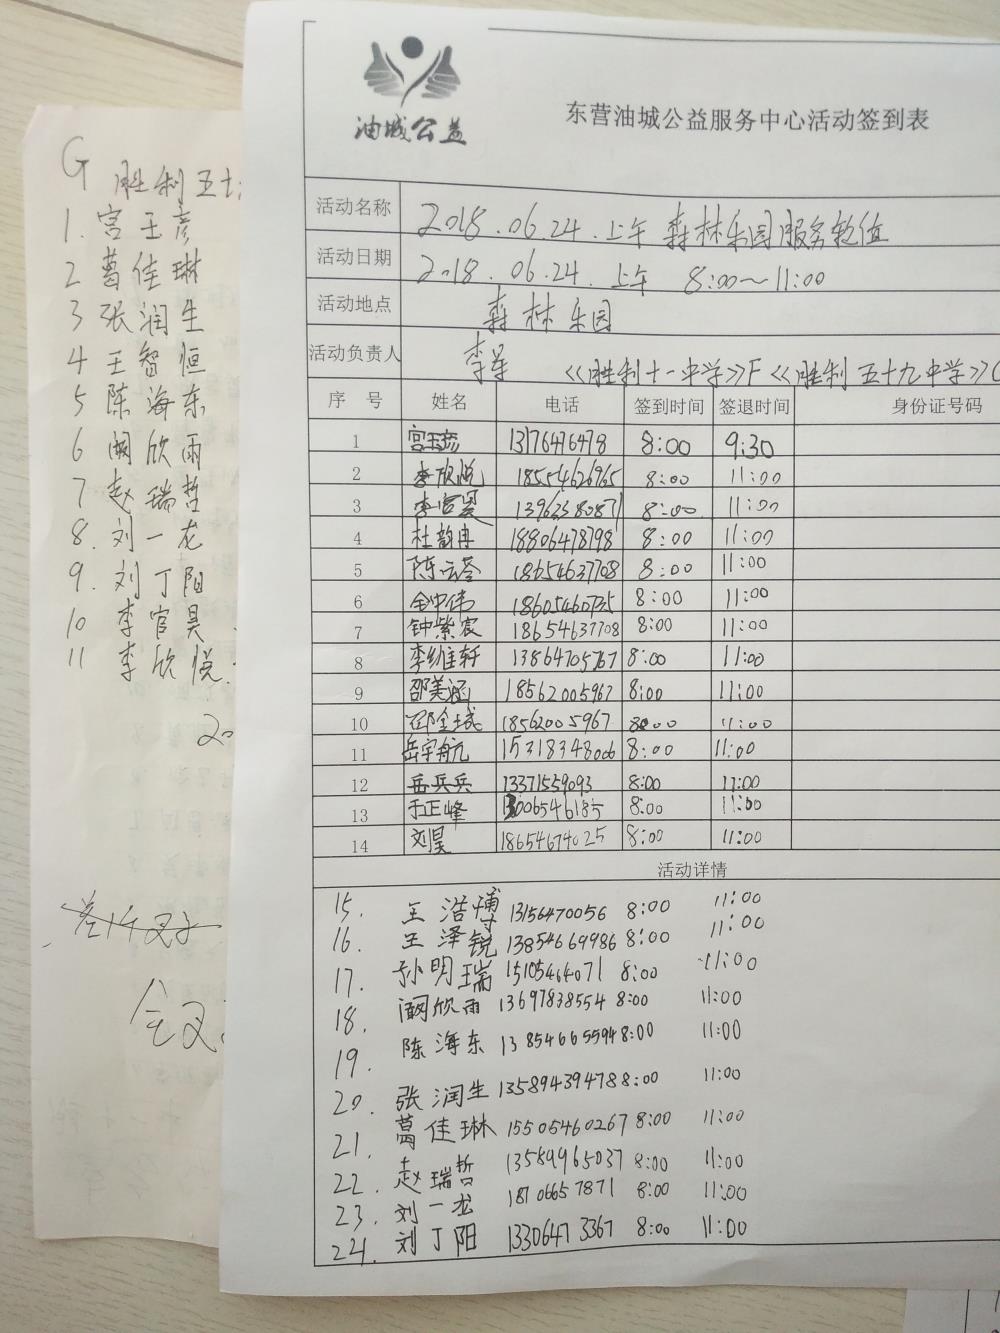 油城公益
东营油城公益服务中心活动签到表
活动名称 2018.06.24.上午 森林乐园服务
活动日期 2018.06.24.上午 8:00～11:00
活动地点 森林乐园
活动负责人 李军 《胜利十一中学》F 《胜利五十九中学》
序号 姓名 电话 签到时间 签退时间 身份证号码
1 宫玉彦 13176476478 8:00 9:30
2 李欣悦 18554626965 8:00 11:00
3 李官昊 13962380871 8:00 11:00
4 杜韵冉 18806478798 8:00 11:00
5 陈云荟 18654637708 8:00 11:00
6 18605460735 8:00 11:00
7 钟紫宸 18654637708 8:00 11:00
8 李维轩 13864705767 8:00 11:00
9 邵美涵 18562005967 8:00 11:00
10 18562005967 8:00 11:00
11 岳宇航 15318348006 8:00 11:00
12 岳兵兵 13371559093 8:00 11:00
13 于正峰 13006546185 8:00 11:00
14 刘昊 18654674025 8:00 11:00
活动详情
15. 王浩博 13156470056 8:00 11:00
16. 王泽锐 13854669986 8:00 11:00
17. 孙明瑞 15105464071 8:00 11:00
18. 阚欣雨 13697838554 8:00 11:00
19. 陈海东 13854665594 8:00 11:00
20. 张润生 13589439478 8:00 11:00
21. 葛佳琳 15505460267 8:00 11:00
22. 赵瑞哲 13589965037 8:00 11:00
23. 刘一龙 18706657871 8:00 11:00
24. 刘丁阳 13306473367 8:00 11:00
G 胜利五十
1. 宫玉彦
2 葛佳琳
3 张润生
4 王智恒
5 陈海东
6 阚欣雨
7 赵瑞哲
8. 刘一龙
9. 刘丁阳
10 李官昊
11 李欣悦.
20